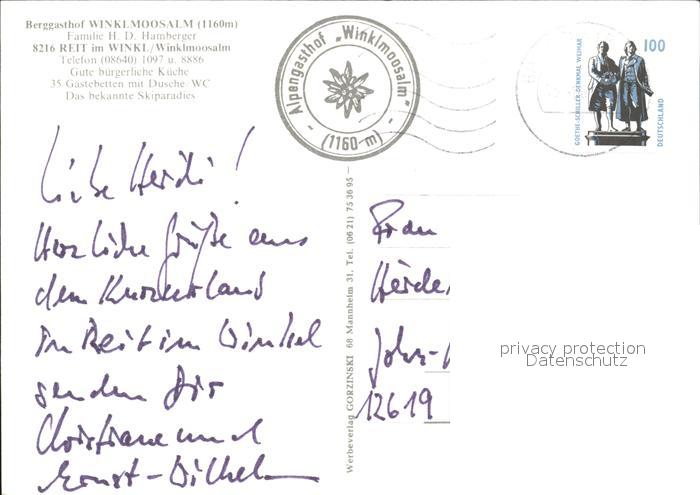 Berggasthof WINKLMOOSALM (1160m)
Familie H. D. Hamberger
8216 REIT im WINKL/Winklmoosalm
Telefon (08640) 1097 u. 8886
Gute bürgerliche Küche
35 Gästebetten mit Dusche/WC
Das bekannte Skiparadies
Alpengasthof „Winklmoosalm"
- (1160 m) -
GOETHE-SCHILLER-DENKMAL WEIMAR
100
DEUTSCHLAND
Liebe Heidi!
Herzliche Grüße aus
dem
in Reit im Winkel
senden Dir
Christiane und
Ernst-Wilhelm
Werbeverlag GORZINSKI 68 Mannheim 31, Tel. (06 21) 75 36 95
Frau
12619
privacy protection
Datenschutz